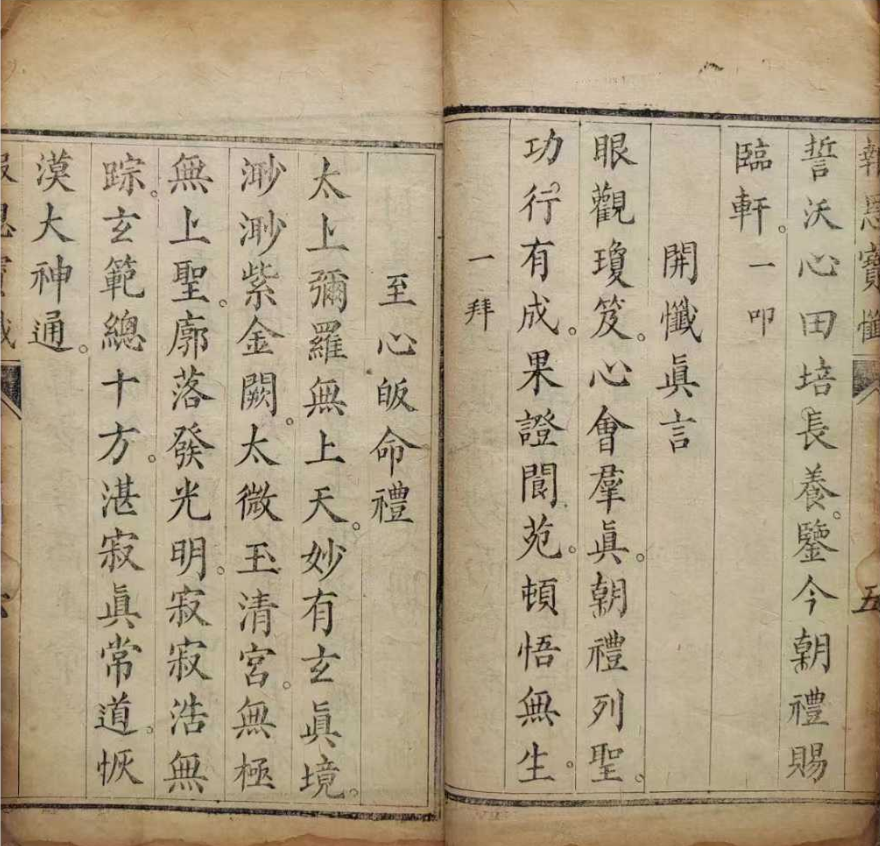 報恩寶懺
五
誓沃心田培長養。鑒今朝禮賜
臨軒。一叩
開懺眞言
眼觀瓊笈。心會羣眞。朝禮列聖。
功行有成。果證閬苑。頓悟無生。
一拜
至心皈命禮
太上彌羅無上天。妙有玄眞境。
渺渺紫金闕。太微玉清宮。無極
無上聖。廓落發光明。寂寂浩無
踪。玄範總十方。湛寂眞常道。恢
漠大神通。
報恩寶懺